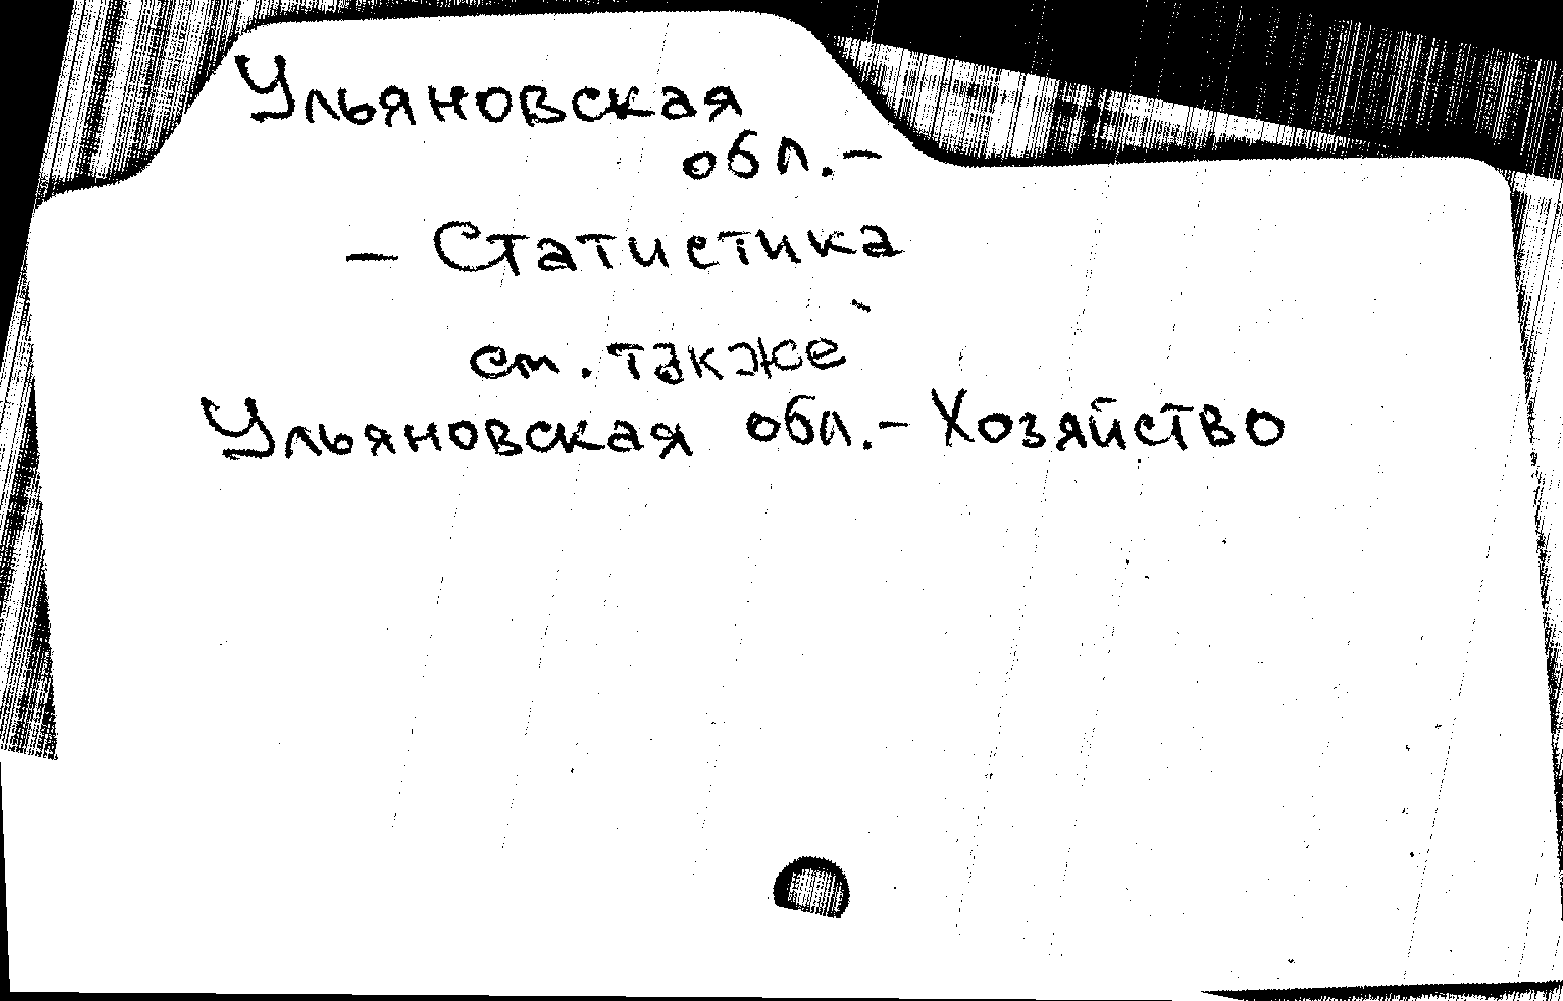 Ульяновская
обл.-
- Статистика
см. также
Ульяновская обл.- Хозяйство